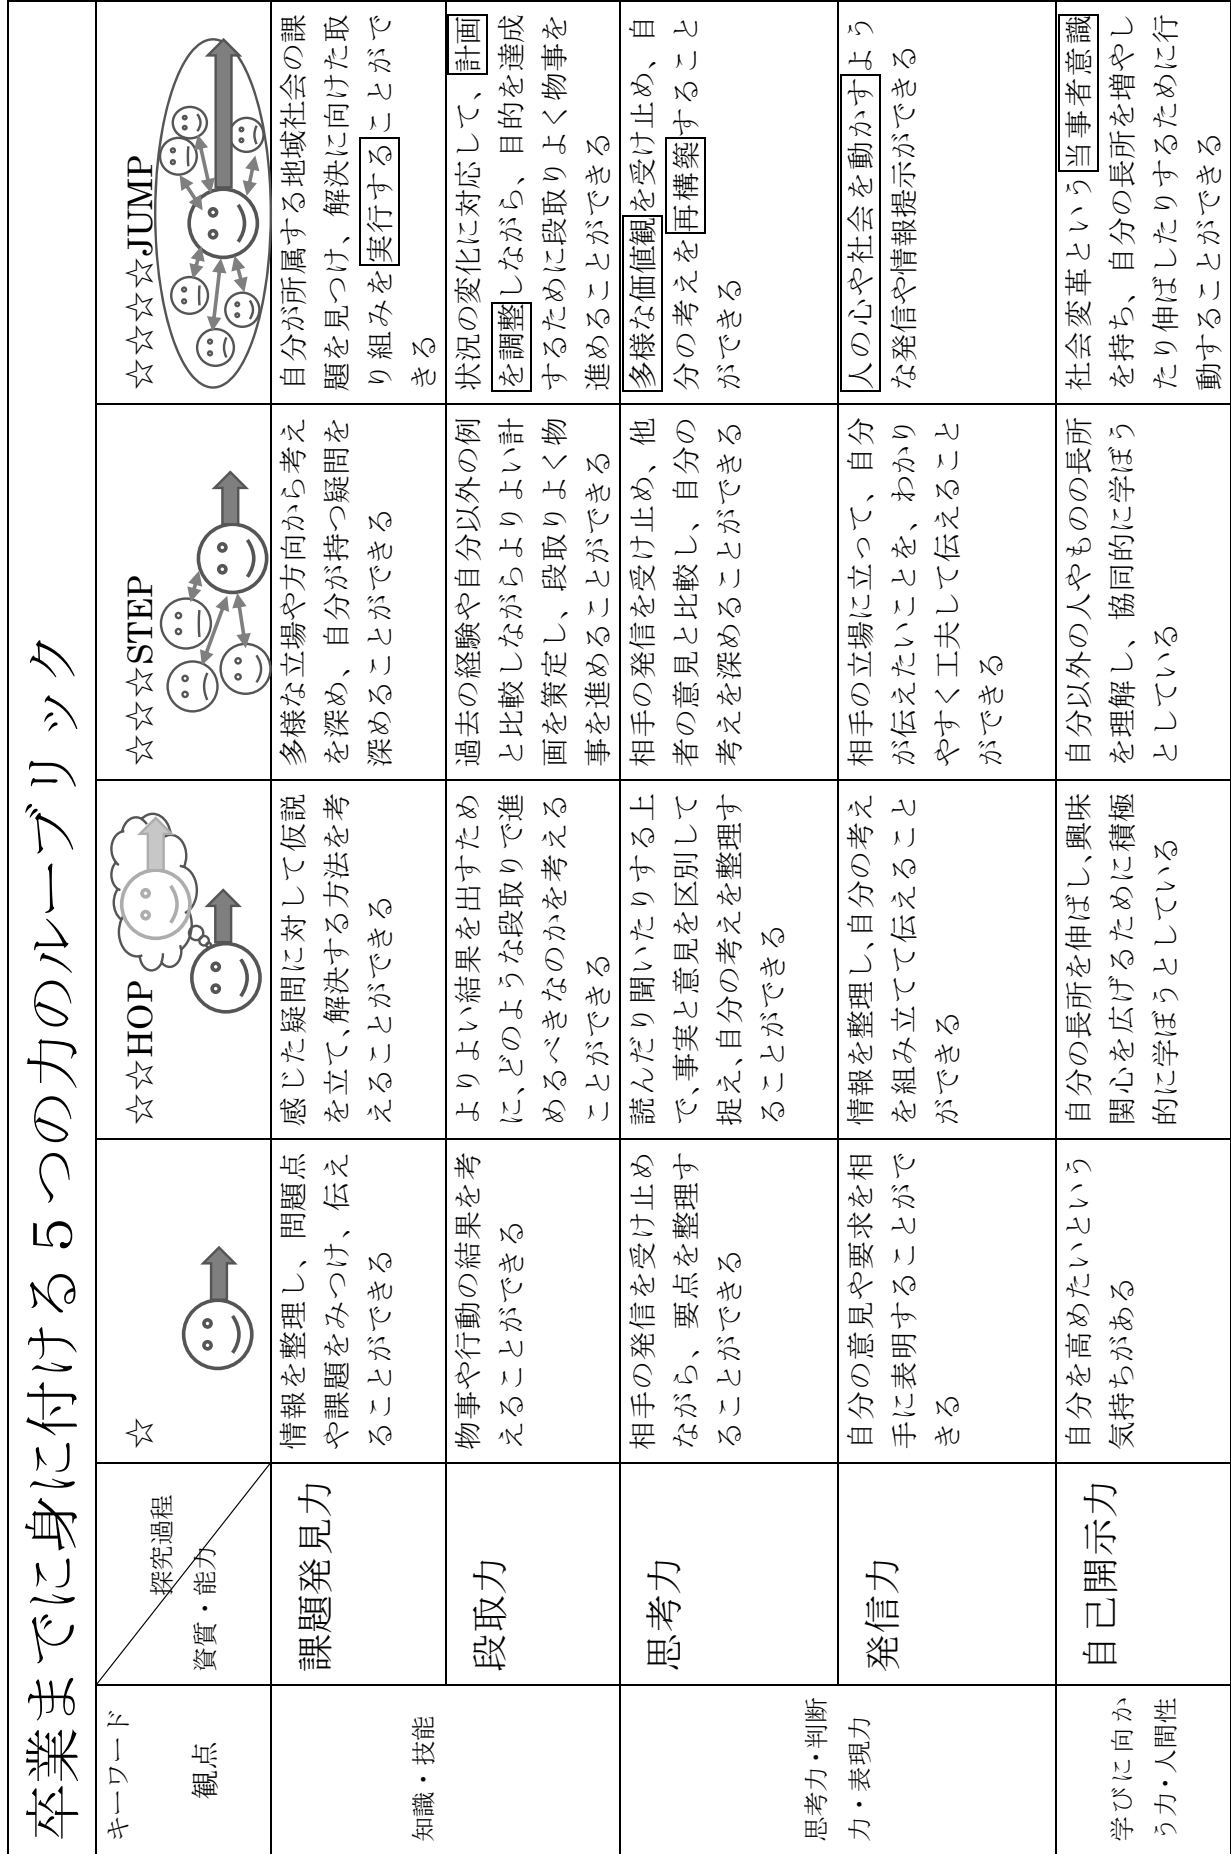 卒業までに身に付ける５つの力のルーブリック
キーワード
観点
探究過程
資質・能力
☆
☆☆HOP
☆☆☆STEP
☆☆☆☆JUMP
知識・技能
課題発見力
情報を整理し、問題点
や課題をみつけ、伝え
ることができる
感じた疑問に対して仮説
を立て、解決する方法を考
えることができる
多様な立場や方向から考え
を深め、自分が持つ疑問を
深めることができる
自分が所属する地域社会の課
題を見つけ、解決に向けた取
り組みを実行することがで
きる
段取力
物事や行動の結果を考
えることができる
よりよい結果を出すため
に、どのような段取りで進
めるべきなのかを考える
ことができる
過去の経験や自分以外の例
と比較しながらよりよい計
画を策定し、段取りよく物
事を進めることができる
状況の変化に対応して、計画
を調整しながら、目的を達成
するために段取りよく物事を
進めることができる
思考力・判断
力・表現力
思考力
相手の発信を受け止め
ながら、要点を整理す
ることができる
読んだり聞いたりする上
で、事実と意見を区別して
捉え、自分の考えを整理す
ることができる
相手の発信を受け止め、他
者の意見と比較し、自分の
考えを深めることができる
多様な価値観を受け止め、自
分の考えを再構築すること
ができる
発信力
自分の意見や要求を相
手に表明することがで
きる
情報を整理し、自分の考え
を組み立てて伝えること
ができる
相手の立場に立って、自分
が伝えたいことを、わかり
やすく工夫して伝えること
ができる
人の心や社会を動かすよう
な発信や情報提示ができる
学びに向か
う力・人間性
自己開示力
自分を高めたいという
気持ちがある
自分の長所を伸ばし、興味
関心を広げるために積極
的に学ぼうとしている
自分以外の人やものの長所
を理解し、協同的に学ぼう
としている
社会変革という当事者意識
を持ち、自分の長所を増やし
たり伸ばしたりするために行
動することができる